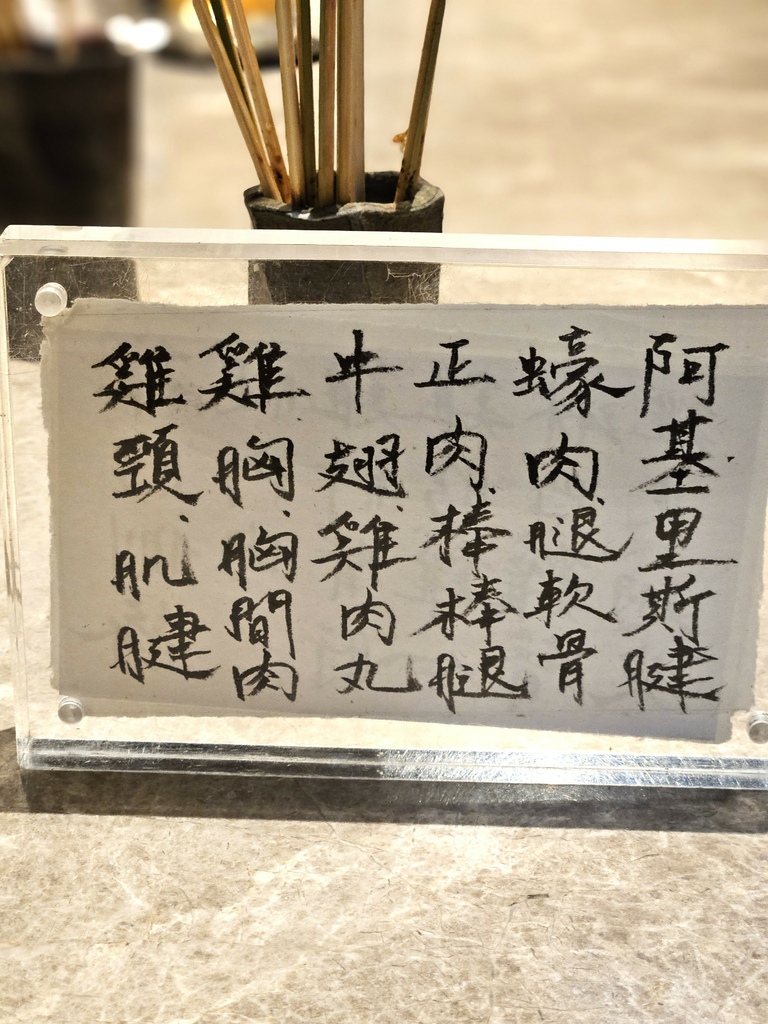 阿基里斯腱
蠔肉、腿軟骨
正肉、棒棒腿
半翅、雞肉丸
雞胸、胸間肉
雞頸、肌腱